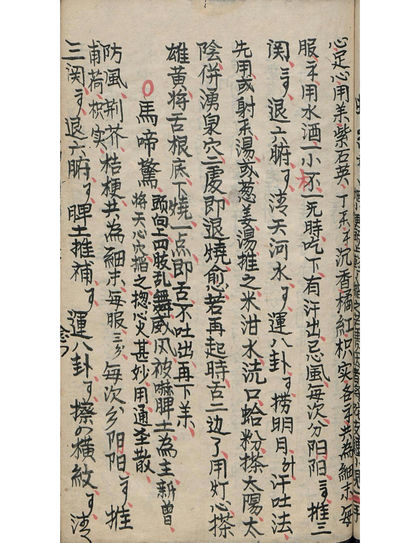 心足心用姜紫石英丁香沉香橘紅枳实各共為細末每
服用水酒一小不一死時吃下有汗出忌風每次分阴阳推三
関退六腑清天河水運八卦撈明月汗吐法
先用或射末湯或葱姜湯推之米泔水洗口蛤粉搽太陽太
陰併湧泉穴二處即退燒愈若再起時舌二边了用灯心搽
雄黄将舌根底下燒一点即舌不吐出再下姜
馬啼驚 頭向上四肢乱舞感风被嚇脾土為主新曾
将天心穴掐之揔心火甚妙用通圣散
防風荆芥桔梗共為細末每服三分每次分阴阳推
甫荷枳实
三関退六腑脾土推補運八卦擦横紋清